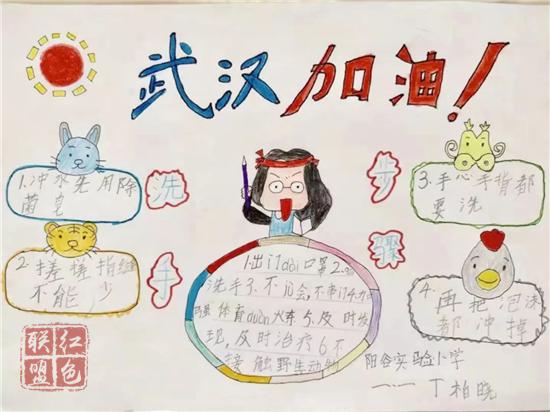 武汉加油！
1.冲水先用除
菌皂
洗
手
2.搓搓指缝
不能少
步
骤
3.手心手背都
要洗
4.再把泡沫
都冲掉
1.出门dài口罩2.
洗手3.不
体育duàn大东5.及时发
现,及时治疗6不
接触野生动物
阳谷实验小学
一.一 丁柏晓
联红
盟色